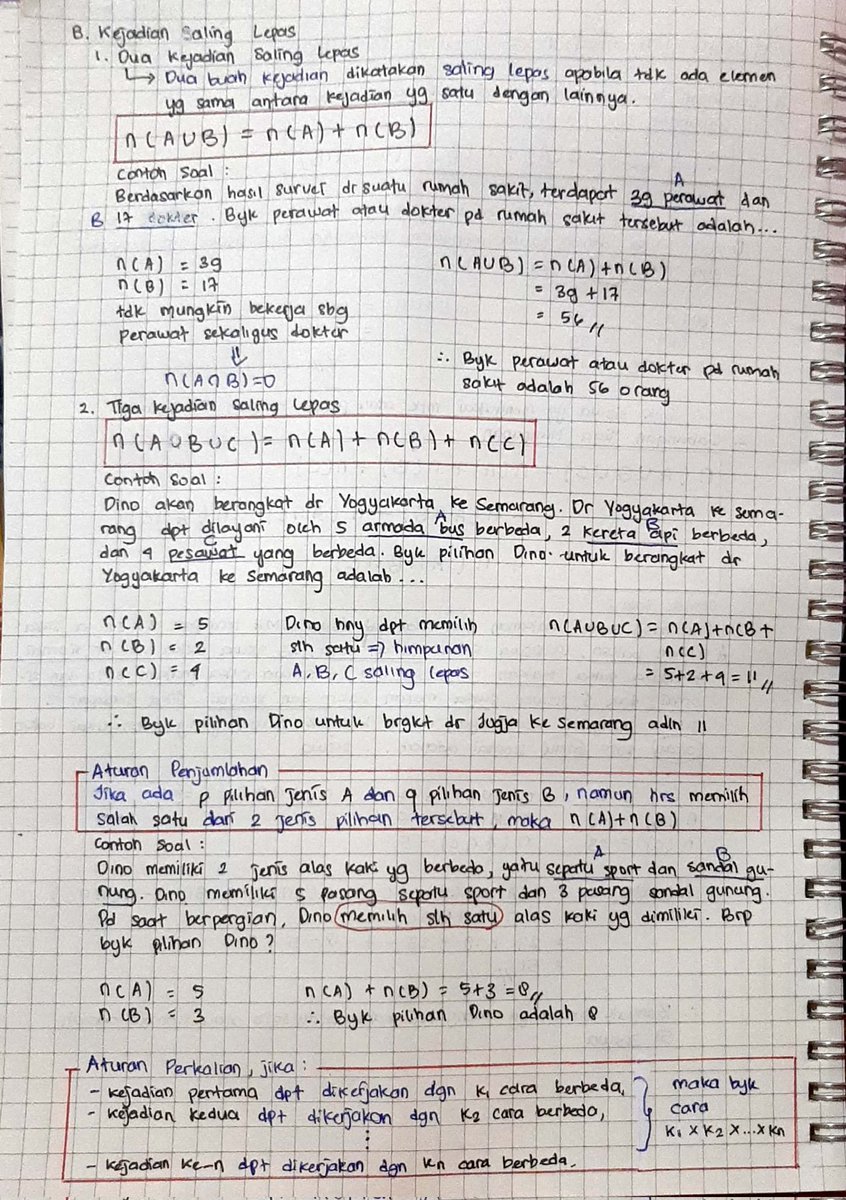 B. Kejadian Saling Lepas
1. Dua Kejadian Saling Lepas
↳ Dua buah kejadian dikatakan saling lepas apabila tdk ada elemen
yg sama antara kejadian yg satu dengan lainnya.
n(A∪B) = n(A) + n(B)
Contoh Soal :
Berdasarkan hasil survei dr suatu rumah sakit, terdapat 39 perawat dan
A
B 17 dokter. Byk perawat atau dokter pd rumah sakit tersebut adalah...
n(A) = 39
n(B) = 17
tdk mungkin bekerja sbg
perawat sekaligus dokter
⇓
n(A∩B)=0
n(A∪B) = n(A)+n(B)
= 39 + 17
= 56 //
∴ Byk perawat atau dokter pd rumah
sakit adalah 56 orang
2. Tiga Kejadian Saling Lepas
n(A∪B∪C) = n(A) + n(B) + n(C)
Contoh Soal :
Dino akan berangkat dr Yogyakarta ke Semarang. Dr Yogyakarta ke sema-
rang dpt dilayani oleh 5 armada bus berbeda, 2 kereta api berbeda,
A B
C
dan 4 pesawat yang berbeda. Byk pilihan Dino untuk berangkat dr
Yogyakarta ke Semarang adalah ...
n(A) = 5
n(B) = 2
n(C) = 4
Dino hny dpt memilih
slh satu => himpunan
A, B, C saling lepas
n(A∪B∪C) = n(A)+n(B+
n(C)
= 5+2+4 = 11 //
∴ Byk pilihan Dino untuk brgkt dr Jogja ke Semarang adlh 11
Aturan Penjumlahan
Jika ada p pilihan jenis A dan q pilihan jenis B, namun hrs memilih
salah satu dari 2 jenis pilihan tersebut, maka n(A)+n(B)
Contoh Soal :
Dino memiliki 2 jenis alas kaki yg berbeda, yaitu sepatu sport dan sandal gu-
A B
nung. Dino memiliki 5 pasang sepatu sport dan 3 pasang sandal gunung.
Pd saat berpergian, Dino memilih slh satu alas kaki yg dimiliki. Brp
byk pilihan Dino?
n(A) = 5
n(B) = 3
n(A) + n(B) = 5+3 = 8 //
∴ Byk pilihan Dino adalah 8
Aturan Perkalian, jika :
- kejadian pertama dpt dikerjakan dgn k₁ cara berbeda,
- kejadian kedua dpt dikerjakan dgn k₂ cara berbeda,
⋮
- kejadian ke-n dpt dikerjakan dgn kn cara berbeda.
maka byk
cara
k₁ × k₂ × ... × kn